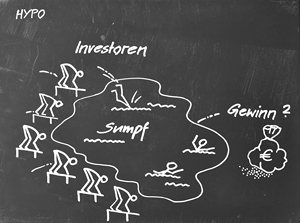 HYPO
Investoren
Gewinn ?
Sumpf
€